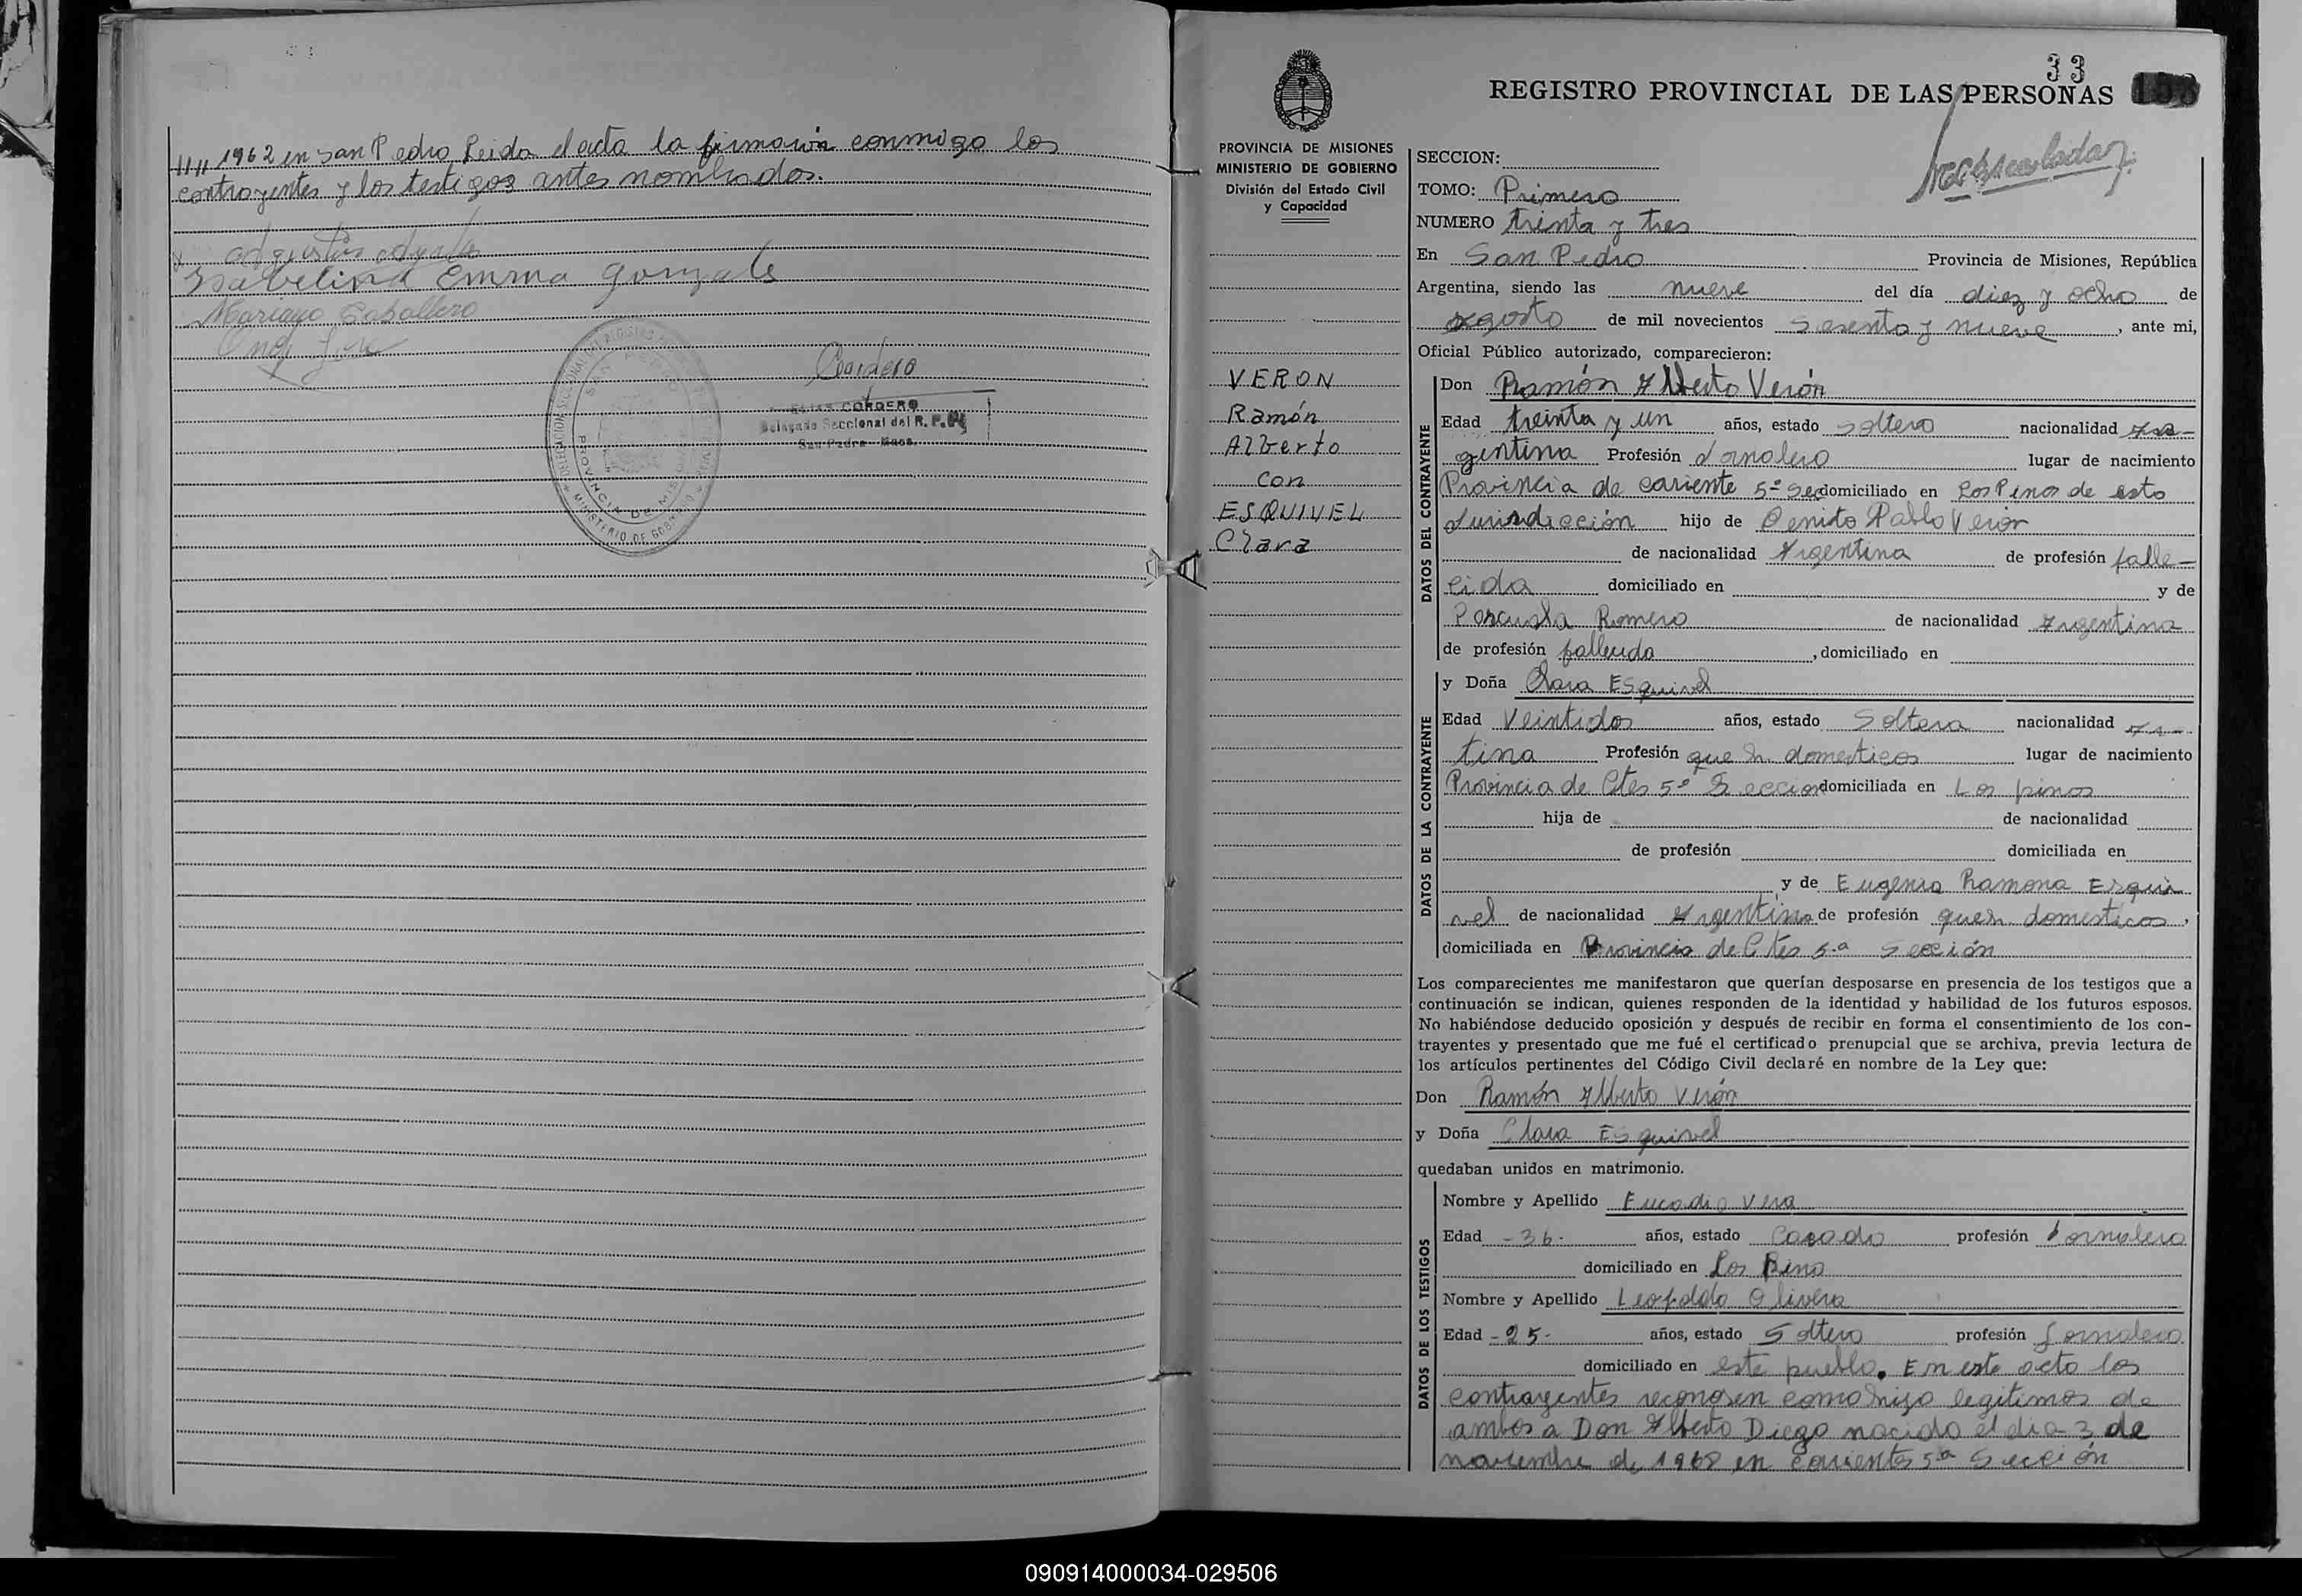 1962 en San Pedro Leida el acta la firmaron conmigo los
contrayentes y los testigos antes nombrados.
Isabelina Emma Gonzale
Mariano Caballero
Cordero
ELIAS CORDERO
Delegado Seccional del R. P. P.
San Pedro - Mnes.
PROVINCIA DE MISIONES
MINISTERIO DE GOBIERNO
33
REGISTRO PROVINCIAL DE LAS PERSONAS
PROVINCIA DE MISIONES
MINISTERIO DE GOBIERNO
División del Estado Civil
y Capacidad
VERON
Ramón
Alberto
Con
ESQUIVEL
Clara
SECCION:
TOMO: Primero
NUMERO treinta y tres
En San Pedro Provincia de Misiones, República
Argentina, siendo las nueve del día diez y ocho de
agosto de mil novecientos sesenta y nueve, ante mi,
Oficial Público autorizado, comparecieron:
DATOS DEL CONTRAYENTE
Don Ramón Alberto Verón
Edad treinta y un años, estado soltero nacionalidad Ar-
gentina Profesión Jornalero lugar de nacimiento
Provincia de corriente 5º Sec domiciliado en Los Pinos de esta
Jurisdicción hijo de Benito Pablo Verón
de nacionalidad Argentina de profesión falle-
cida domiciliado en y de
Pascuala Romero de nacionalidad Argentina
de profesión fallecida, domiciliado en
DATOS DE LA CONTRAYENTE
y Doña Clara Esquivel
Edad Veintidos años, estado Soltera nacionalidad
tina Profesión queh. domesticos lugar de nacimiento
Provincia de Ctes 5º Seccion domiciliada en Los pinos
hija de de nacionalidad
de profesión domiciliada en
y de Eugenia Ramona Esqui
vel de nacionalidad Argentina de profesión queh. domesticos,
domiciliada en Provincia de Ctes 5.a Sección
Los comparecientes me manifestaron que querían desposarse en presencia de los testigos que a
continuación se indican, quienes responden de la identidad y habilidad de los futuros esposos.
No habiéndose deducido oposición y después de recibir en forma el consentimiento de los con-
trayentes y presentado que me fué el certificado prenupcial que se archiva, previa lectura de
los artículos pertinentes del Código Civil declaré en nombre de la Ley que:
Don Ramón Alberto Verón
y Doña Clara Esquivel
quedaban unidos en matrimonio.
DATOS DE LOS TESTIGOS
Nombre y Apellido Eucadio Vera
Edad -36- años, estado Casado profesión Jornalero
domiciliado en Los Pino
Nombre y Apellido Leopoldo Olivera
Edad -25- años, estado Soltero profesión Jornalero
domiciliado en este pueblo. En este acto los
contrayentes reconosen como hijo legitimos de
ambos a Don Alberto Diego nacido el dia 3 de
noviembre de 1968 en corrientes 5ª Sección
090914000034-029506